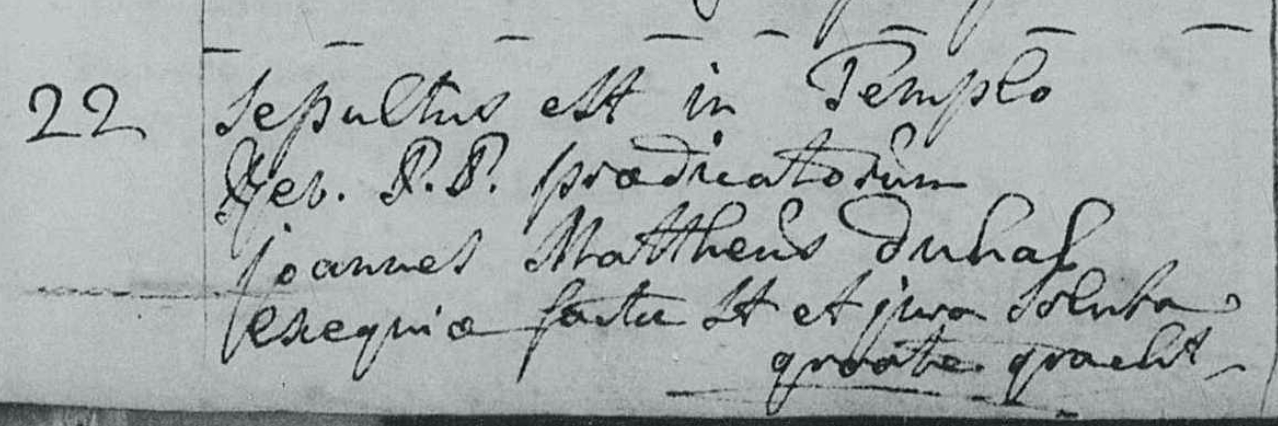 22 Sepultus est in Templo
Rev. P.P. prædicatorum
joannes Mattheus Duhal
exequiæ factæ st et jura soluta
groote gracht